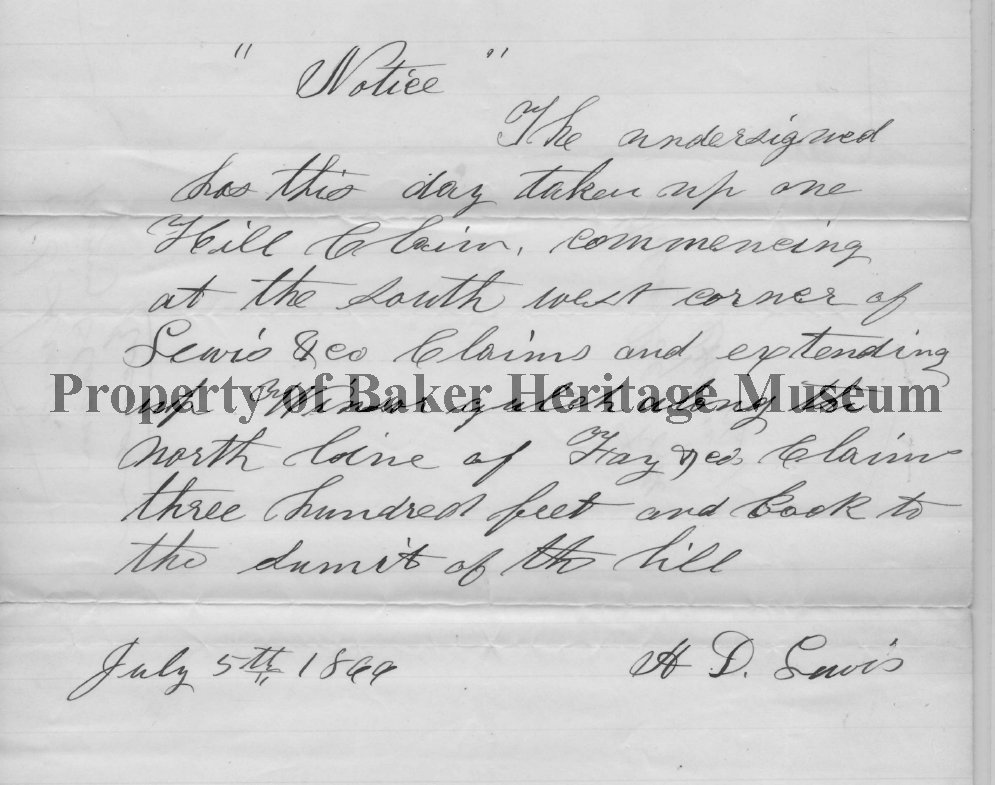 " Notice "
The undersigned
has this day taken up one
Hill Claim, commencing
at the south west corner of
Lewis & co Claims and extending
Property of Baker Heritage Museum
up gulch along the
north line of Fay & co. Claims
three hundred feet and back to
the sumit of the hill
July 5th 1866
H D. Lewis